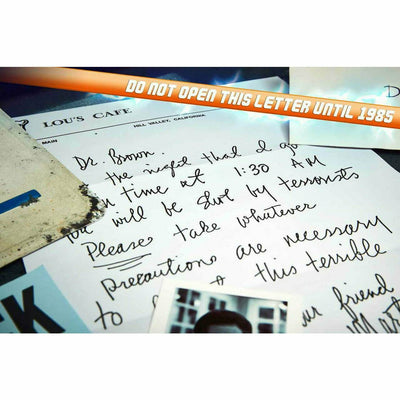 DO NOT OPEN THIS LETTER UNTIL 1985
D
LOU'S CAFE
HILL VALLEY, CALIFORNIA
MAIN
Dr. Brown.
the night that I go
time at 1:30 AM
will be shot by terrorists
Please take whatever
precautions are necessary
to this terrible
friend
K